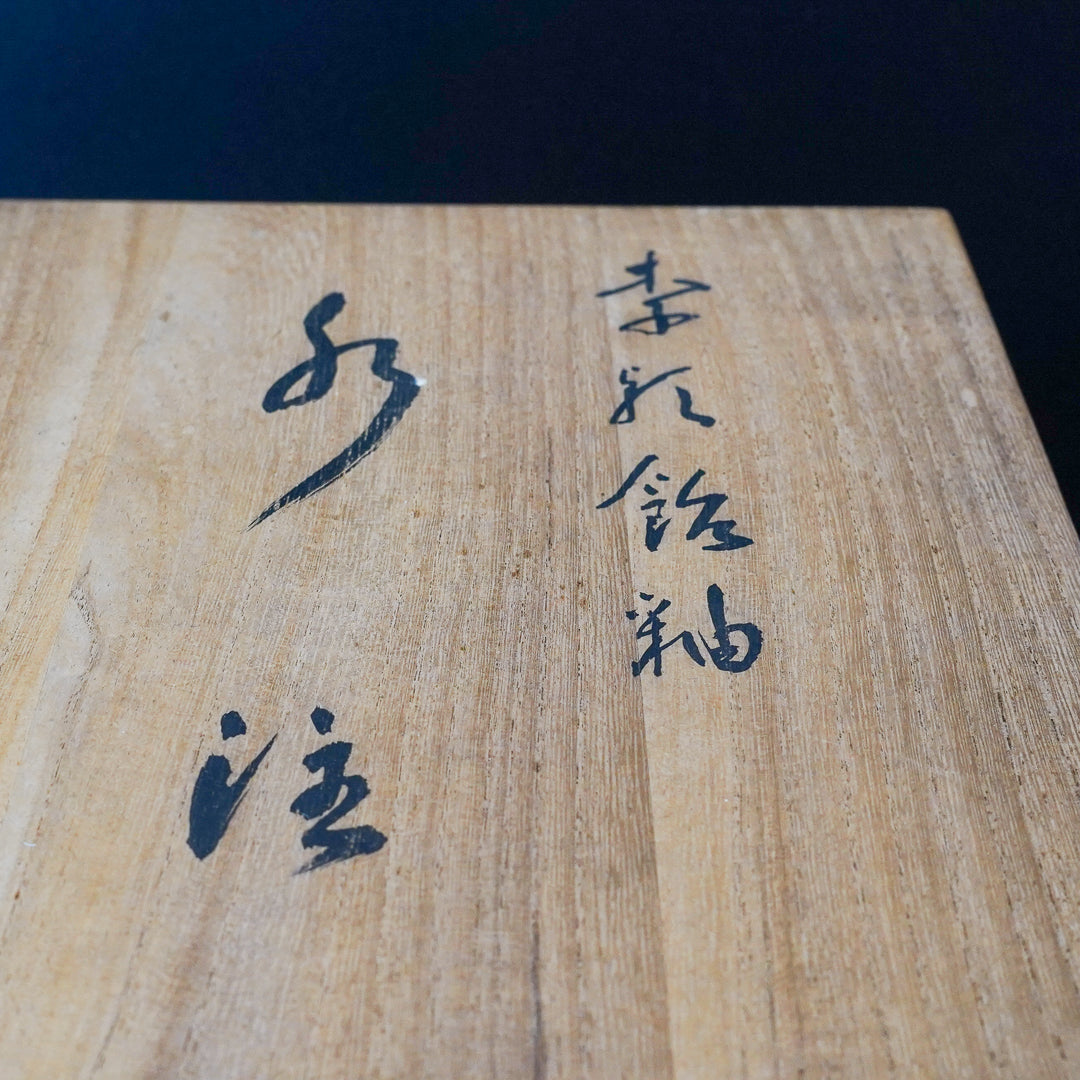 李朝飴釉
水注